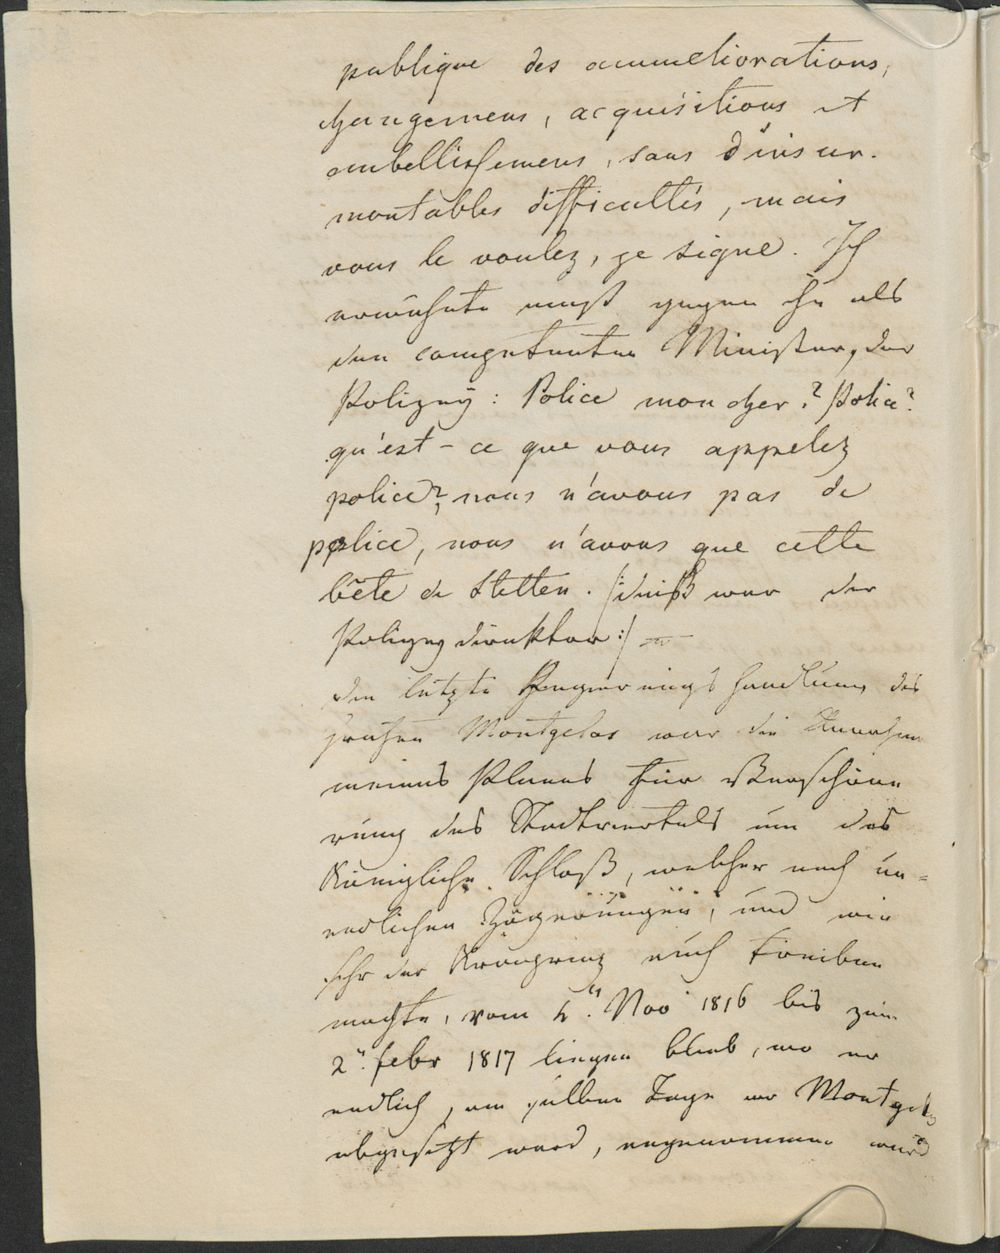 publique des ammeliorations,
changemens, acquisitions et
embellissemens, sans d'insur-
montables difficultés, mais
vous le voulez, je signe. Ich
erwähnte einst gegen ihn als
den competenten Minister, der
Polizey: Police mon cher? Police?
qu'est-ce que vous appelez
police?, nous n'avons pas de
police, nous n'avons que cette
bête de Stetten. /:dieß war der
Polizey direktor:/ —
Die letzte Regierungshandlung des
Grafen Montgelas war die Annahme
meines Planes für Verschöne
rung des Stadtviertels um das
Königliche Schloß, welcher nach un-
endlichen Zögerungen, und wie
sehr der Kronprinz auch treiben
mochte, vom 4ᵗ. Nov 1816 bis zum
2ᵗ. febr 1817 liegen blieb, wo er
endlich, am selben Tage wo Montgelas
abgesetzt ward, angenommen wurd